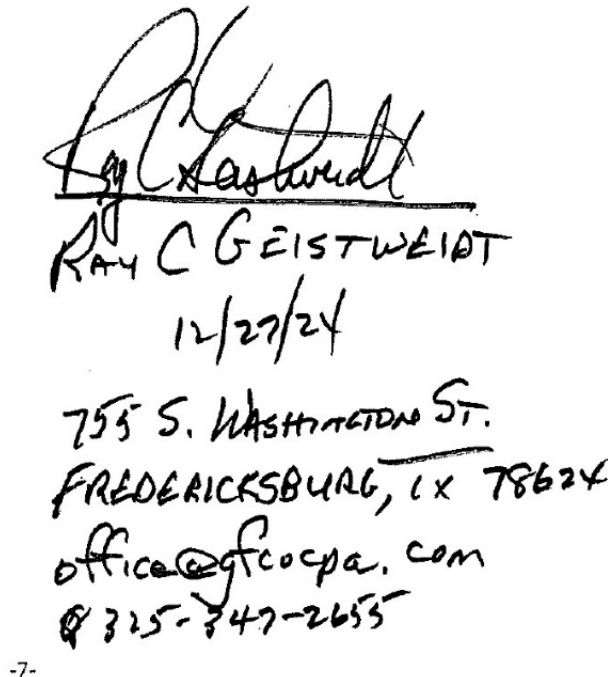 Ray C Geistweidt
RAY C GEISTWEIDT
12/27/24
755 S. WASHINGTON ST.
FREDERICKSBURG, TX 78624
office@gfcocpa.com
325-347-2655
-7-